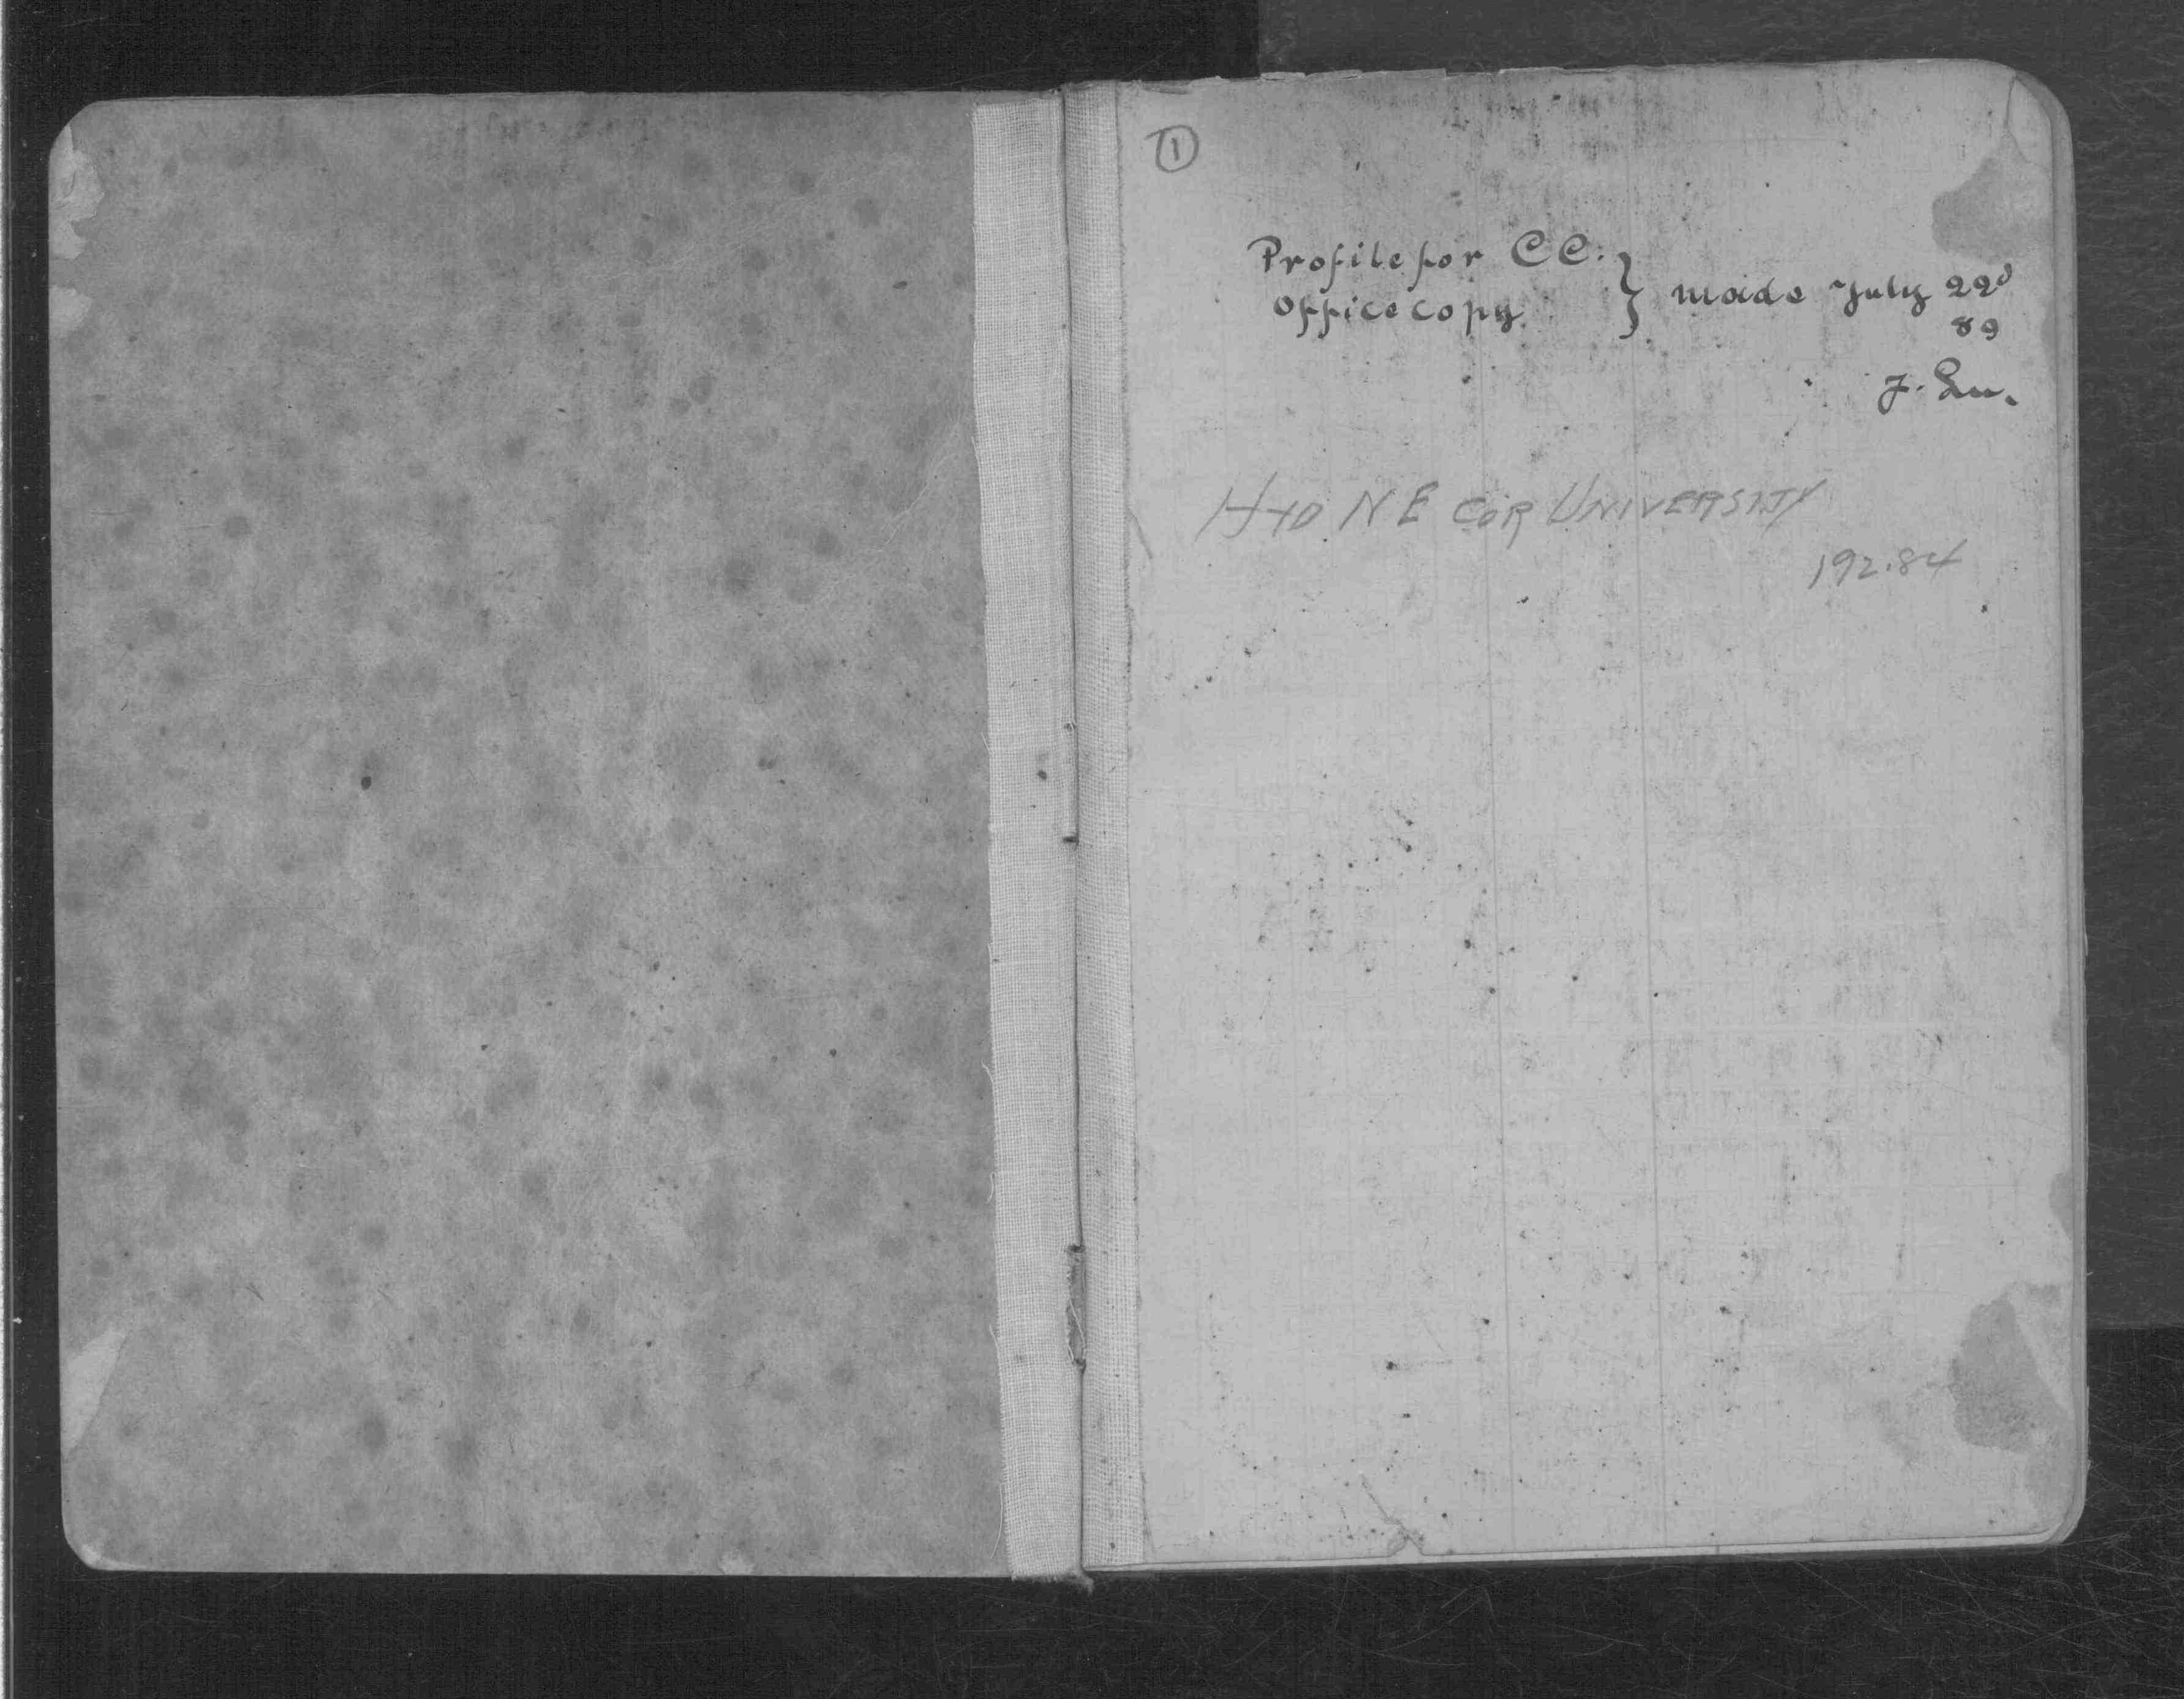 1
Profile for C C. } made July 22d
Office copy. 89
J.
HYD N E COR UNIVERSITY
192.84